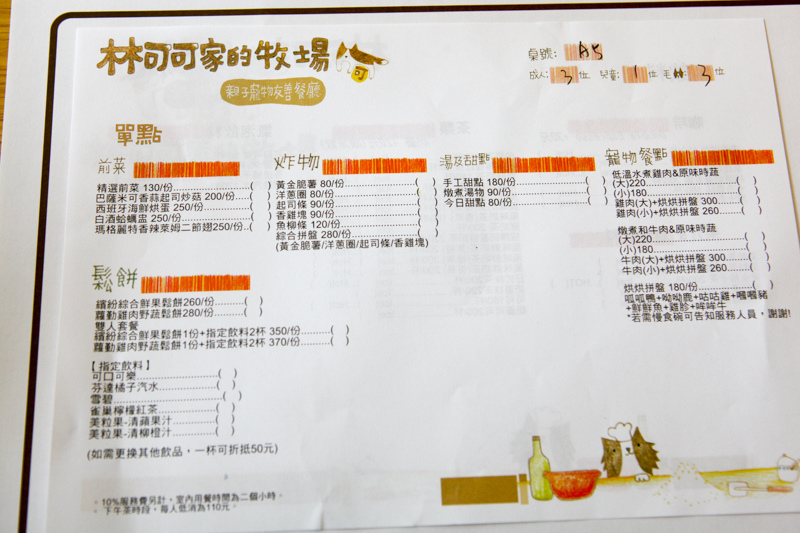 林可可家的牧場
可
親子寵物友善餐廳
桌號: A5
成人: 3 位 兒童: 1 位 毛林: 3 位
單點
前菜
精選前菜 130/份( )
巴薩米可香蒜起司炒菇 200/份( )
西班牙海鮮烘蛋 250/份( )
白酒蛤蠣盅 250/份( )
瑪格麗特香辣萊姆二節翅250/份( )
炸物
黃金脆薯 80/份( )
洋蔥圈 80/份( )
起司條 90/份( )
香雞塊 90/份( )
魚柳條 120/份( )
綜合拼盤 280/份( )
(黃金脆薯/洋蔥圈/起司條/香雞塊)
湯及甜點
手工甜點 180/份( )
燉煮湯物 90/份( )
今日甜點 80/份( )
寵物餐點
低溫水煮雞肉&原味時蔬
(大)220( )
(小)180( )
雞肉(大)+烘烘拼盤 300( )
雞肉(小)+烘烘拼盤 260( )
燉煮和牛肉&原味時蔬
(大)220( )
(小)180( )
牛肉(大)+烘烘拼盤 300( )
牛肉(小)+烘烘拼盤 260( )
烘烘拼盤 180/份( )
呱呱鴨+呦呦鹿+咕咕雞+嘓嘓豬
+鮮鮮魚+雞胗+哞哞牛
*若需慢食碗可告知服務人員，謝謝!
鬆餅
繽紛綜合鮮果鬆餅260/份( )
蘿勤雞肉野蔬鬆餅280/份( )
雙人套餐
繽紛綜合鮮果鬆餅1份+指定飲料2杯 350/份( )
蘿勤雞肉野蔬鬆餅1份+指定飲料2杯 370/份( )
【指定飲料】
可口可樂( )
芬達橘子汽水( )
雪碧( )
雀巢檸檬紅茶( )
美粒果-清蘋果汁( )
美粒果-清柳橙汁( )
(如需更換其他飲品，一杯可折抵50元)
。10%服務費另計，室內用餐時間為二個小時。
。下午茶時段，每人低消為110元。